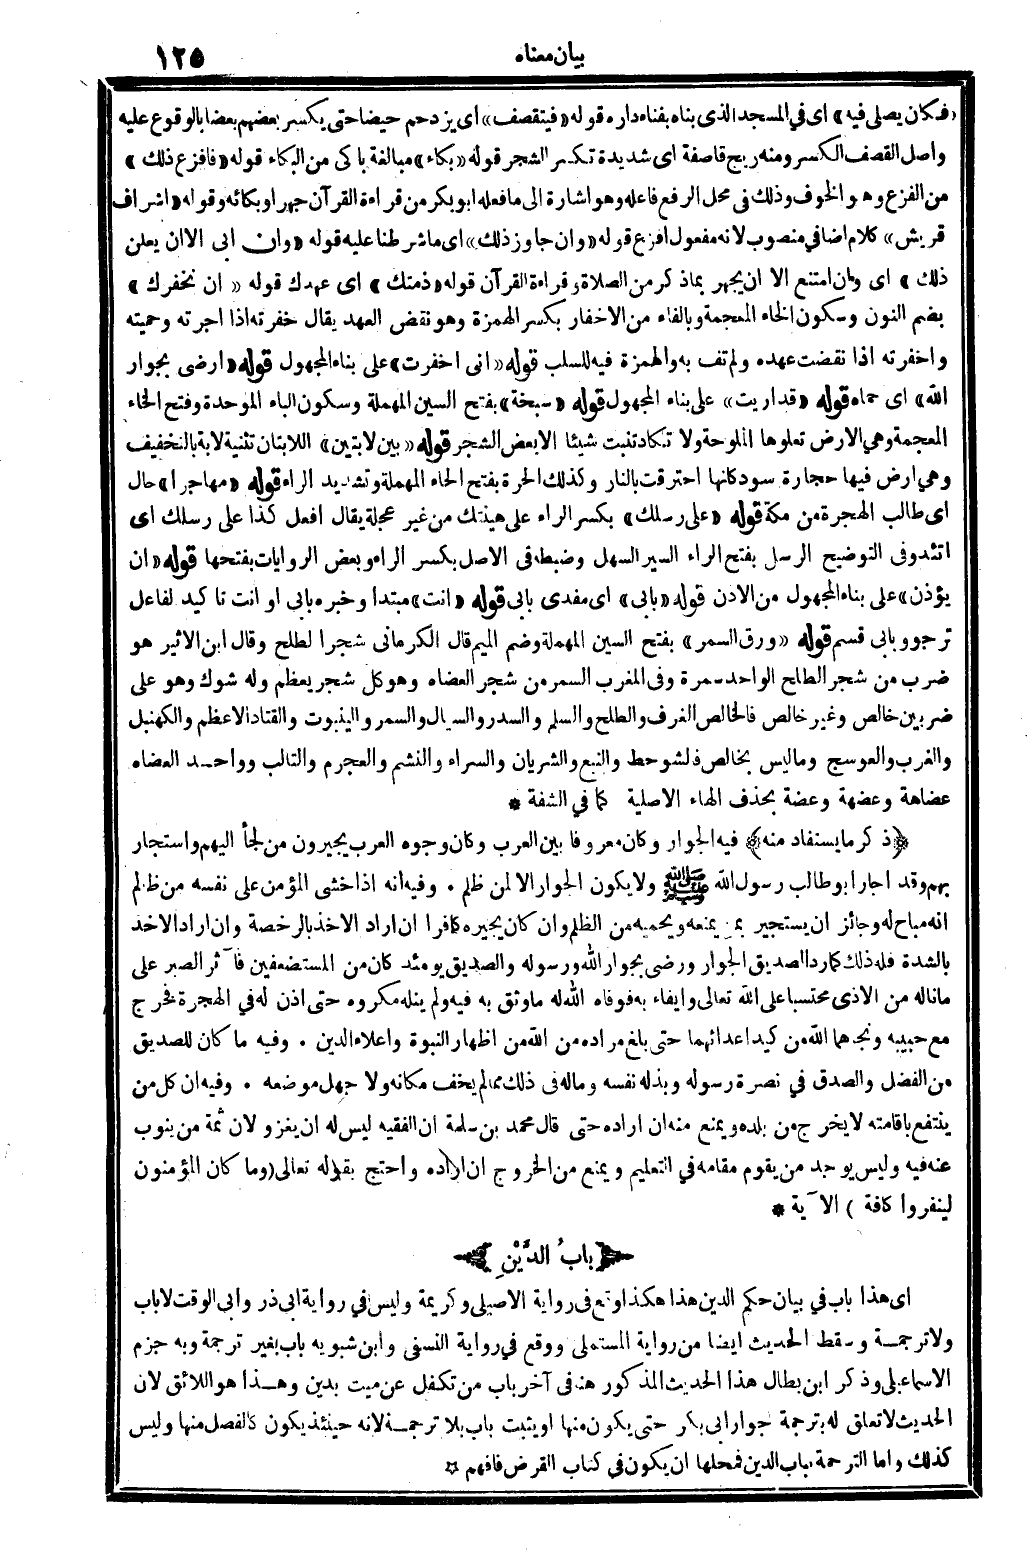 بيان معناه ١٢٥
«فكان يصلي فيه» اى في المسجد الذى بناه بفناء داره قوله «فيتقصف» اى يزدحم حيضا حتى يكسر بعضهم بعضا بالوقوع عليه
واصل القصف الكسر ومنه ريح قاصفة اى شديدة تكسر الشجر قوله «بكاء» مبالغة باكى من البكاء قوله «فافزع ذلك»
من الفزع وهو الخوف وذلك فى محل الرفع فاعله وهو اشارة الى ما فعله ابو بكر من قراءة القرآن جهرا وبكائه وقوله «اشراف
قريش» كلام اضافي منصوب لانه مفعول افزع قوله «وان جاوز ذلك» اى ما شرطنا عليه قوله «وان ابى الا ان يعلن
ذلك» اى وان امتنع الا ان يجهر بما ذكر من الصلاة وقراءة القرآن قوله «ذمتك» اى عهدك قوله «ان نخفرك»
بضم النون وسكون الخاء المعجمة وبالفاء من الاخفار بكسر الهمزة وهو نقض العهد يقال خفرته اذا اجرته وحميته
واخفرته اذا نقضت عهده ولم تف به والهمزة فيه للسلب قوله «انى اخفرت» على بناء المجهول قوله «ارضى بجوار
الله» اى حماه قوله «قد اريت» على بناء المجهول قوله «سبخة» بفتح السين المهملة وسكون الباء الموحدة وفتح الخاء
المعجمة وهي الارض تعلوها الملوحة ولا تكاد تنبت شيئا الا بعض الشجر قوله «بين لابتين» اللابتان تثنية لابة بالتخفيف
وهي ارض فيها حجارة سود كانها احترقت بالنار وكذلك الحرة بفتح الحاء المهملة وتشديد الراء قوله «مهاجرا» حال
اى طالب الهجرة من مكة قوله «على رسلك» بكسر الراء على هينتك من غير عجلة يقال افعل كذا على رسلك اى
اتئد وفى التوضيح الرسل بفتح الراء السير السهل وضبطه فى الاصل بكسر الراء وبعض الروايات بفتحها قوله «ان
يؤذن» على بناء المجهول من الاذن قوله «بابى» اى مفدى بابى قوله «انت» مبتدا وخبره بابى او انت تاكيد لفاعل
ترجو وبابى قسم قوله «ورق السمر» بفتح السين المهملة وضم الميم قال الكرمانى شجرا لطلح وقال ابن الاثير هو
ضرب من شجر الطلح الواحد سمرة وفى المغرب السمر من شجر العضاه وهو كل شجر يعظم وله شوك وهو على
ضربين خالص وغير خالص فالخالص الغرف والطلح والسلم والسدر والسيال والسمر والينبوت والقتاد الاعظم والكهنبل
والغرب والعوسج وما ليس بخالص فالشوحط والنبع والشريان والسراء والنشم والعجرم والتالب وواحد العضاه
عضاهة وعضهة وعضة بحذف الهاء الاصلية كما في الشفة *
﴿ذكر ما يستفاد منه﴾ فيه الجوار وكان معروفا بين العرب وكان وجوه العرب يجيرون من لجأ اليهم واستجار
بهم وقد اجار ابو طالب رسول الله ﷺ ولا يكون الجوار الا لمن ظلم . وفيه انه اذا خشى المؤمن على نفسه من ظالم
انه مباح له وجائز ان يستجير بمن يمنعه ويحميه من الظلم وان كان يجيره كافرا ان اراد الاخذ بالرخصة وان اراد الاخذ
بالشدة فله ذلك كما رد الصديق الجوار ورضى بجوار الله ورسوله والصديق يومئذ كان من المستضعفين فآثر الصبر على
ما ناله من الاذى محتسبا على الله تعالى وايفاء به فوفاه الله له ما وثق به فيه ولم ينله مكروه حتى اذن له في الهجرة فخرج
مع حبيبه ونجاهما الله من كيد اعدائهما حتى بلغ مراده من الله من اظهار النبوة واعلاء الدين . وفيه ما كان للصديق
من الفضل والصدق في نصرة رسوله وبذله نفسه وماله فى ذلك مما لم يخف مكانه ولا جهل موضعه . وفيه ان كل من
ينتفع باقامته لا يخرج من بلده ويمنع منه ان اراده حتى قال محمد بن سلمة ان الفقيه ليس له ان يغزو لان ثمة من ينوب
عنه فيه وليس يوجد من يقوم مقامه في التعليم ويمنع من الخروج ان اراده واحتج بقوله تعالى (وما كان المؤمنون
لينفروا كافة) الآية *
بابُ الدَّيْنِ
اى هذا باب في بيان حكم الدين هذا هكذا وقع فى رواية الاصيلى وكريمة وليس في رواية ابى ذر وابى الوقت لا باب
ولا ترجمة وسقط الحديث ايضا من رواية المستملى ووقع في رواية النسفى وابن شبويه باب بغير ترجمة وبه جزم
الاسماعيلى وذكر ابن بطال هذا الحديث المذكور هنا فى آخر باب من تكفل عن ميت بدين وهذا هو اللائق لان
الحديث لا تعلق له بترجمة جوار ابى بكر حتى يكون منها او يثبت باب بلا ترجمة لانه حينئذ يكون كالفصل منها وليس
كذلك واما الترجمة بباب الدين فمحلها ان يكون في كتاب القرض فافهم *